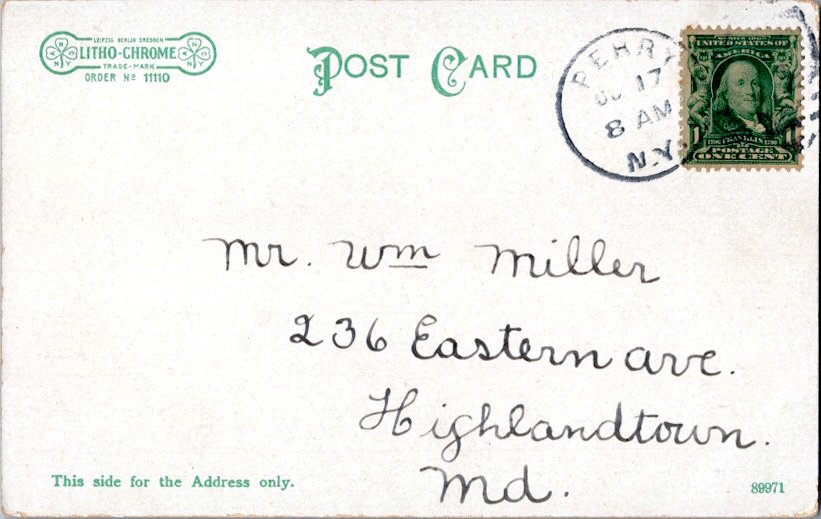 LEIPZIG BERLIN DRESDEN
LITHO-CHROME
TRADE-MARK
ORDER Nº 11110
POST CARD
PERRY
17
8 AM
N.Y.
SERIES 1902
UNITED STATES OF
AMERICA
1 1
1706 FRANKLIN 1790
POSTAGE
ONE CENT
Mr. Wm Miller
236 Eastern ave.
Highlandtown.
Md.
This side for the Address only.
89971